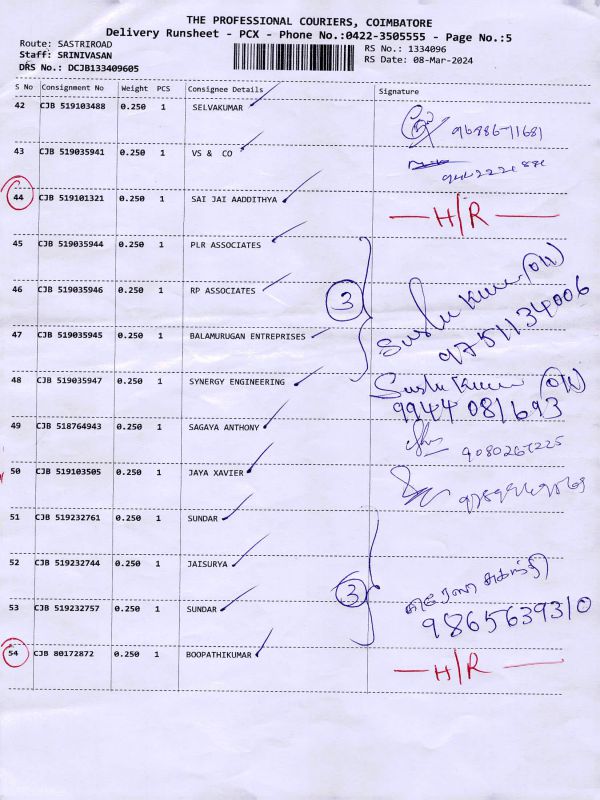 THE PROFESSIONAL COURIERS, COIMBATORE
Delivery Runsheet - PCX - Phone No.:0422-3505555 - Page No.:5
Route: SASTRIROAD RS No.: 1334096
Staff: SRINIVASAN RS Date: 08-Mar-2024
DRS No.: DCJB133409605
S No Consignment No Weight PCS Consignee Details Signature
42 CJB 519103488 0.250 1 SELVAKUMAR
43 CJB 519035941 0.250 1 VS & CO
44 CJB 519101321 0.250 1 SAI JAI AADDITHYA H/R
45 CJB 519035944 0.250 1 PLR ASSOCIATES
46 CJB 519035946 0.250 1 RP ASSOCIATES 3
9751134006
47 CJB 519035945 0.250 1 BALAMURUGAN ENTREPRISES
48 CJB 519035947 0.250 1 SYNERGY ENGINEERING
9944 081693
49 CJB 518764943 0.250 1 SAGAYA ANTHONY
9080267225
50 CJB 519103505 0.250 1 JAYA XAVIER
51 CJB 519232761 0.250 1 SUNDAR
52 CJB 519232744 0.250 1 JAISURYA
3
53 CJB 519232757 0.250 1 SUNDAR
9865639310
54 CJB 80172872 0.250 1 BOOPATHIKUMAR H/R